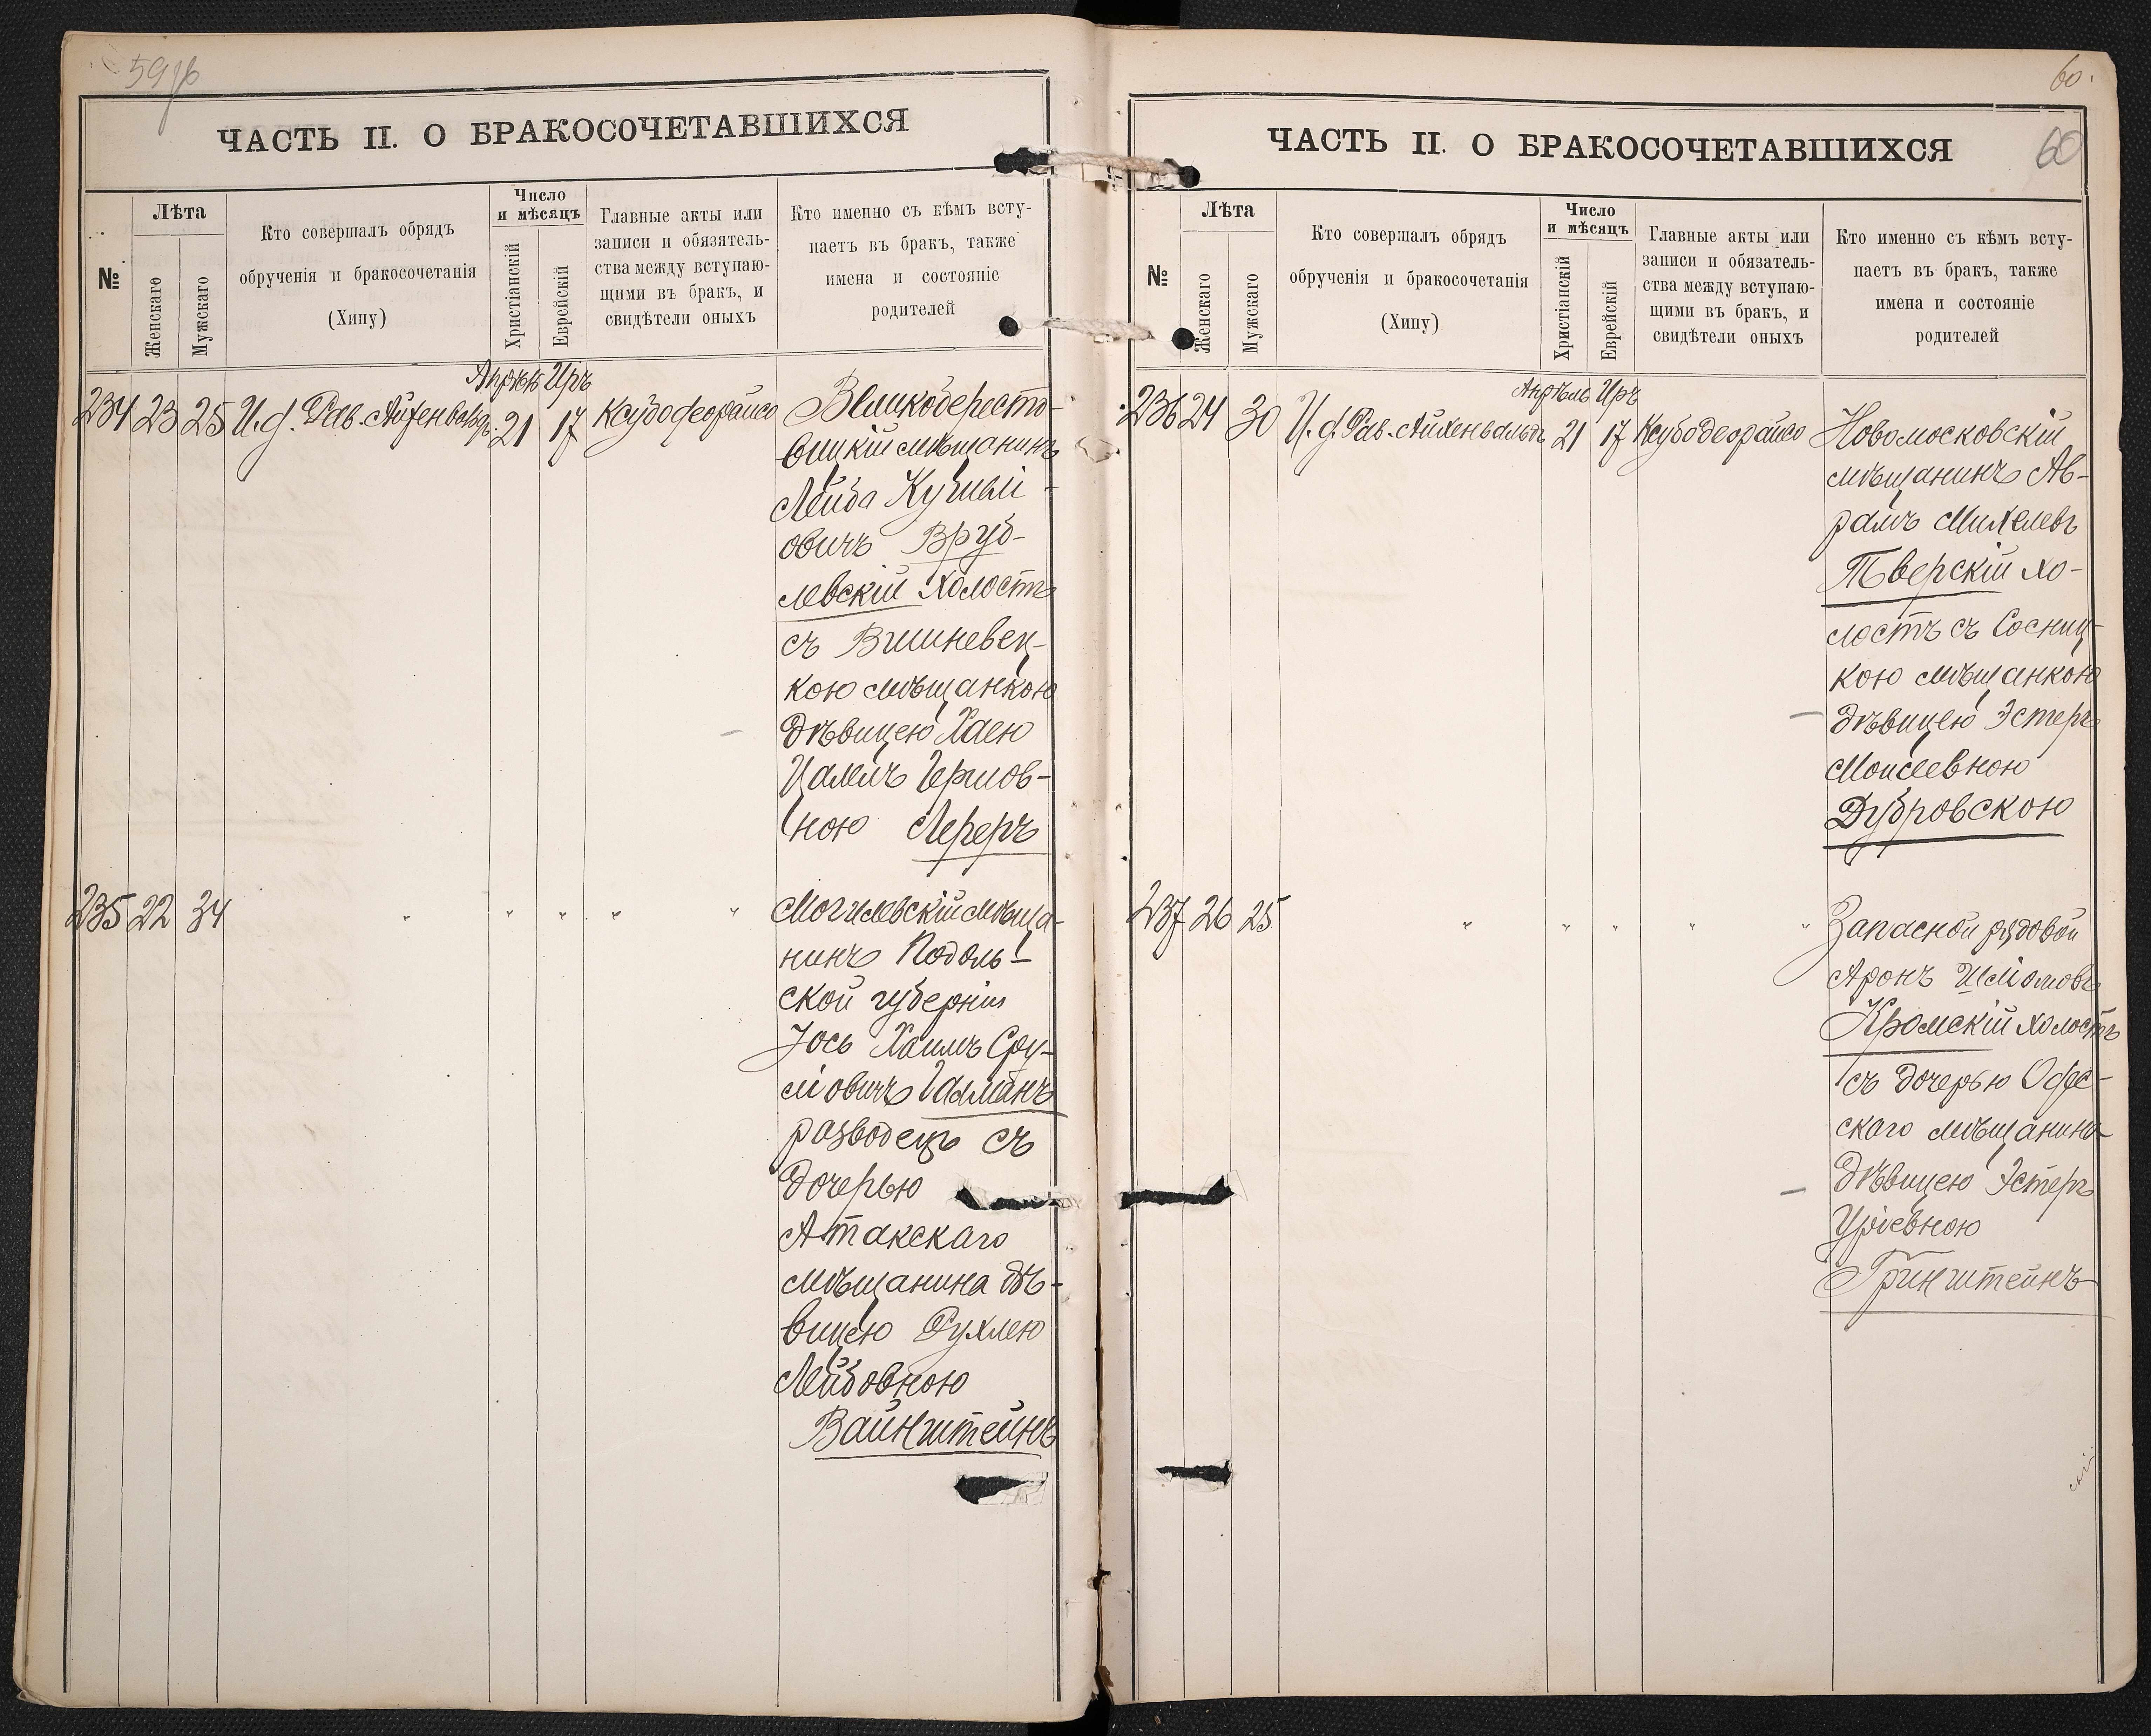 59 об
ЧАСТЬ II. О БРАКОСОЧЕТАВШИХСЯ
№
Лѣта
Женскаго
Мужскаго
Кто совершалъ обрядъ
обрученія и бракосочетанія
(Хипу)
Число
и мѣсяцъ
Христіанскій
Еврейскій
Главные акты или
записи и обязятель-
ства между вступаю-
щими въ бракъ, и
свидѣтели оныхъ
Кто именно съ кѣмъ всту-
паетъ въ бракъ, также
имена и состояніе
родителей
Апрѣль Иръ
234 23 25 И.д. Рав. Айхенвальдъ 21 17 Ксубодеорайсо
Великобересто-
вицкій мѣщанинъ
Лейба
овичъ Вруб-
левскій холостъ
съ Вишневец-
кою мѣщанкою
дѣвицею Хаею
Цалелъ Гершов-
ною Лереръ
235 22 34 " " " " "
Могилевскій мѣща-
нинъ Подоль-
ской губерніи
Іось Хаимъ Сру-
ліовичъ Галманъ
разводецъ съ
дочерью
Атакскаго
мѣщанина дѣ-
вицею Рухлею
Лейбовною
Вайнштейнъ
60.
60
ЧАСТЬ II. О БРАКОСОЧЕТАВШИХСЯ
№
Лѣта
Женскаго
Мужскаго
Кто совершалъ обрядъ
обрученія и бракосочетанія
(Хипу)
Число
и мѣсяцъ
Христіанскій
Еврейскій
Главные акты или
записи и обязатель-
ства между вступаю-
щими въ бракъ, и
свидѣтели оныхъ
Кто именно съ кѣмъ всту-
паетъ въ бракъ, также
имена и состояніе
родителей
Апрѣль Иръ
236 24 30 И.д. Рав. Айхенвальдъ 21 17 Ксубодеорайсо
Новомосковскій
мѣщанинъ Ав-
рамъ Михелевъ
Тверскій хо-
лостъ съ Сосниц-
кою мѣщанкою
дѣвицею Эстеръ
Моисеевною
Дубровскою
237 26 25 " " " " "
Запасной рядовой
Аронъ Шліомовъ
Кромскій холостъ
съ дочерью Одес-
скаго мѣщанина
дѣвицею Эстеръ
Уріевною
Гринштейнъ